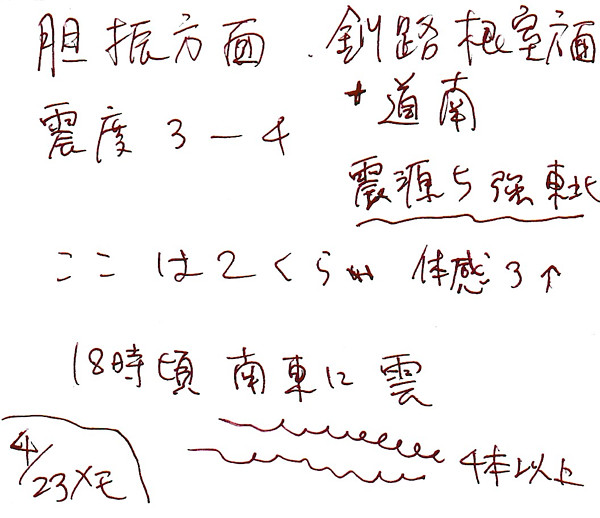 胆振方面．釧路根室方面
+道南
震度3-4
震源5強東北
ここは2くらい 体感3↑
18時頃 南東に雲
4本以上
4/23メモ